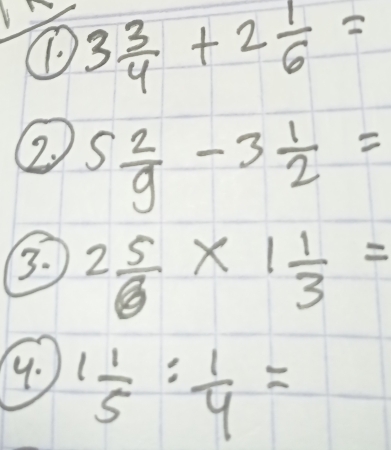 1. 3 3/4 + 2 1/6 =
2. 5 2/9 - 3 1/2 =
3. 2 5/6 × 1 1/3 =
4. 1 1/5 : 1/4 =